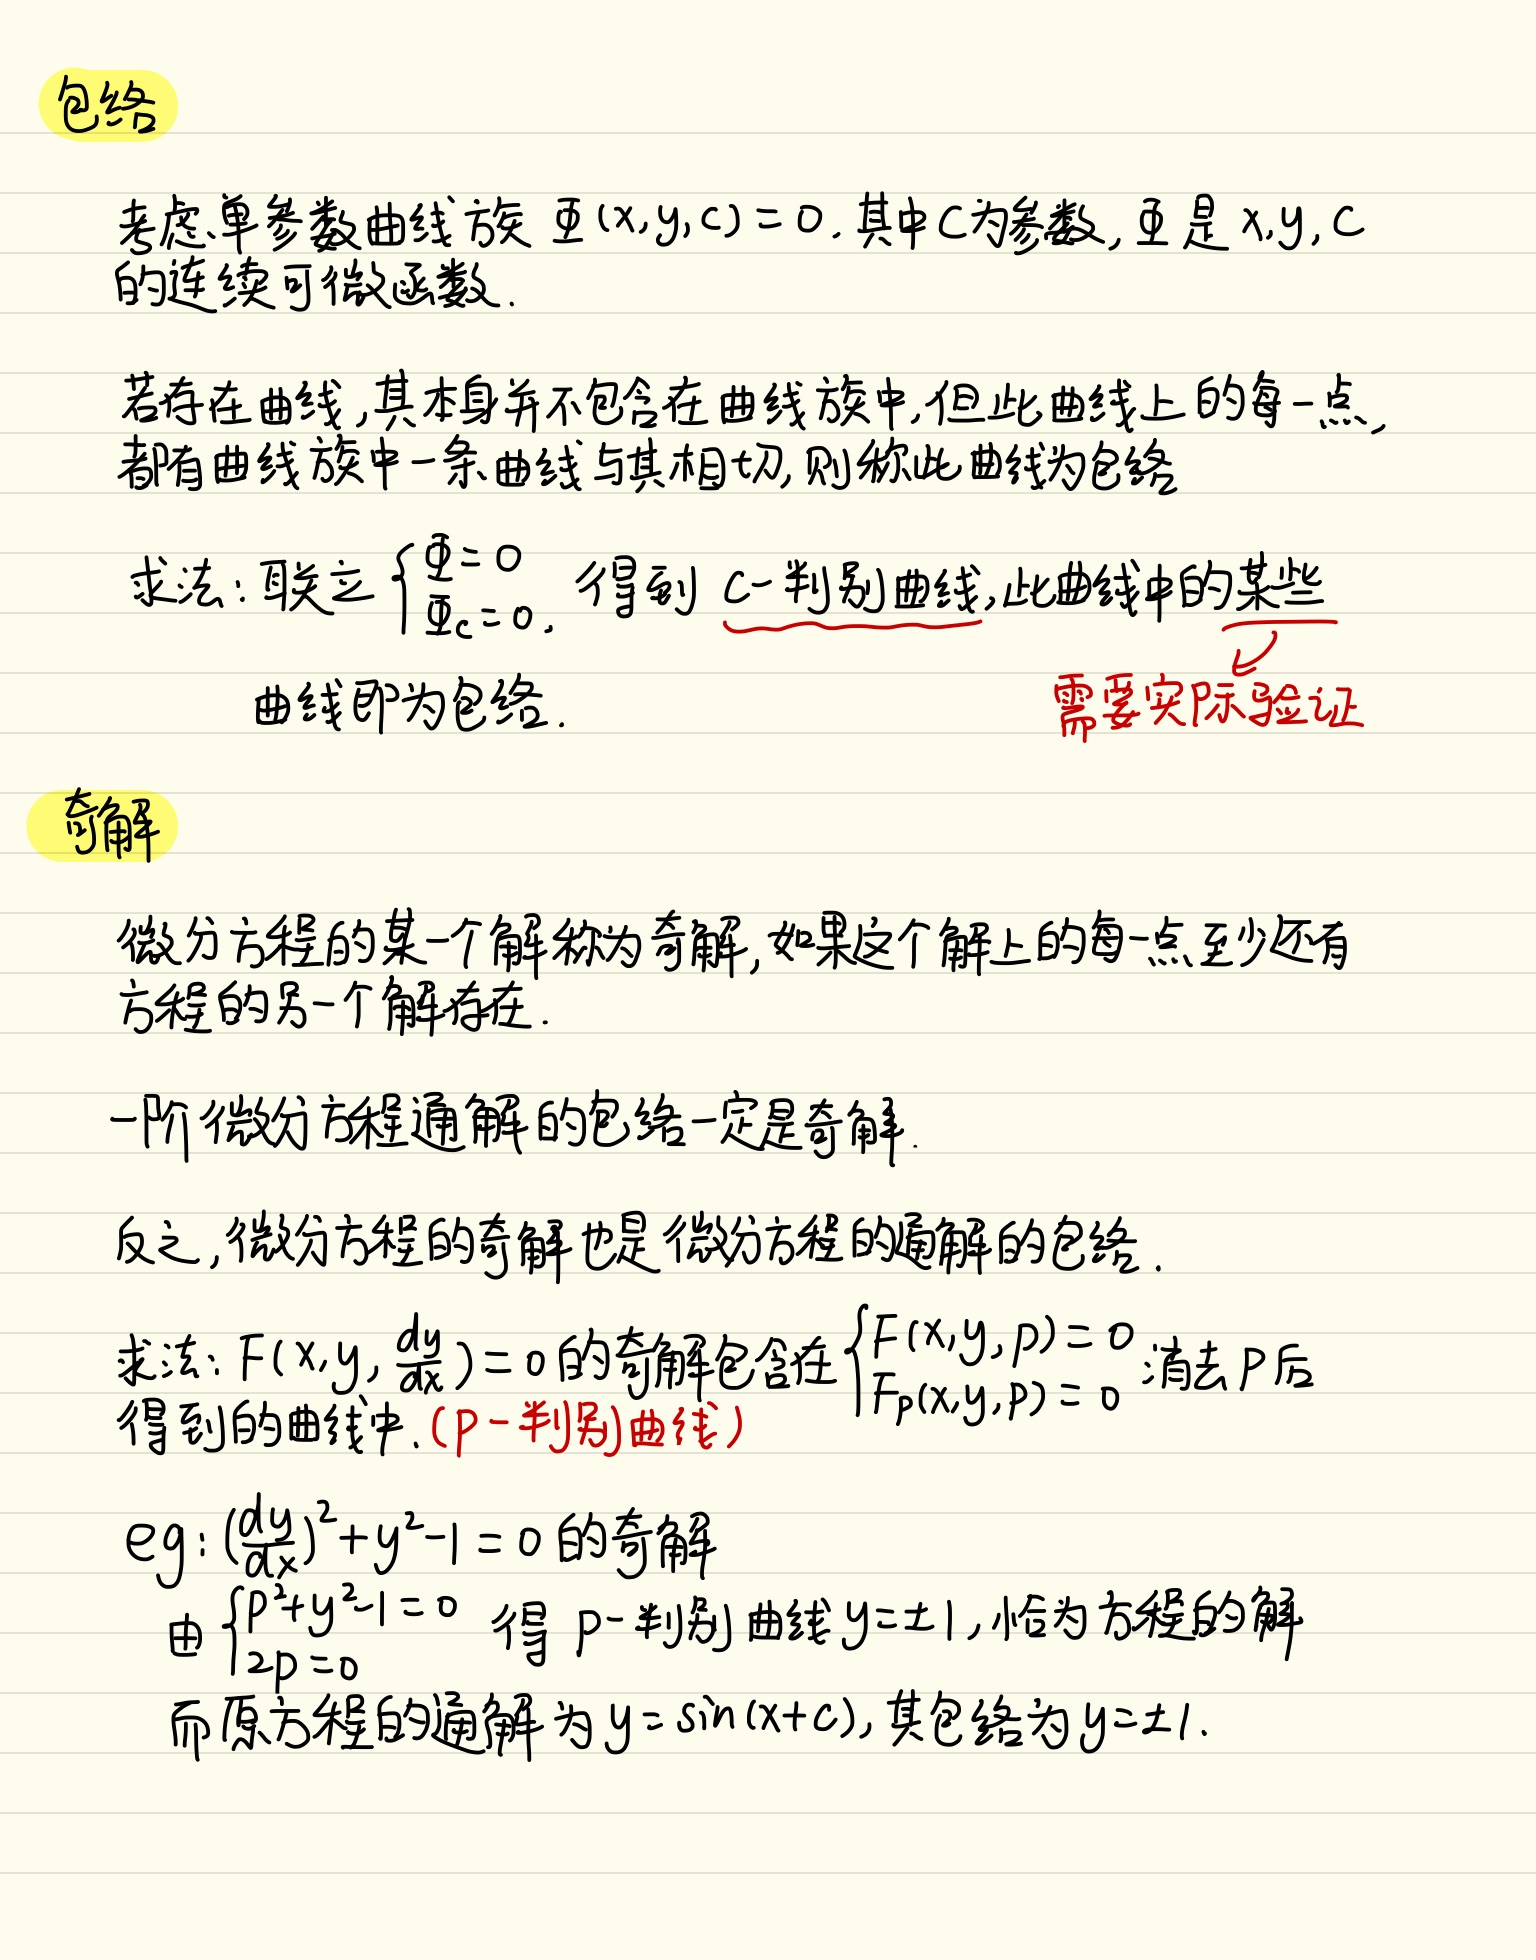 包络
考虑单参数曲线族 Φ(x,y,c)=0. 其中C为参数, Φ是 x,y,C
的连续可微函数.
若存在曲线,其本身并不包含在曲线族中,但此曲线上的每一点,
都有曲线族中一条曲线与其相切,则称此曲线为包络
求法: 联立 { Φ=0
Φc=0. 得到 C-判别曲线,此曲线中的某些
曲线即为包络.
需要实际验证
奇解
微分方程的某一个解称为奇解,如果这个解上的每一点至少还有
方程的另一个解存在.
一阶微分方程通解的包络一定是奇解.
反之,微分方程的奇解也是微分方程的通解的包络.
求法: F(x,y,dy/dx)=0的奇解包含在 { F(x,y,p)=0
Fp(x,y,p)=0 消去P后
得到的曲线中. (P-判别曲线)
eg: (dy/dx)²+y²-1=0的奇解
由 { p²+y²-1=0
2p=0 得 p-判别曲线y=±1,恰为方程的解
而原方程的通解为y=sin(x+c),其包络为y=±1.